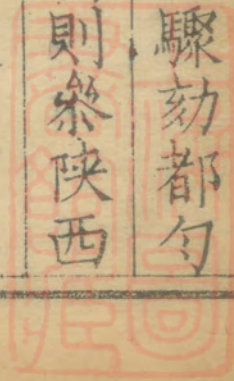 驟劾都勻
則叅陝西